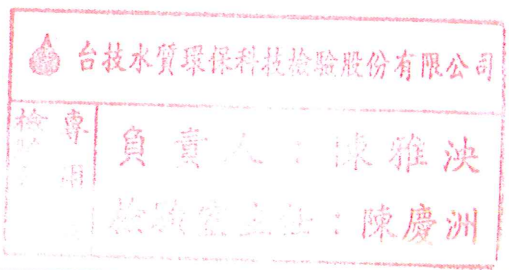 台技水質環保科技檢驗股份有限公司
檢驗專用
負責人：陳雅泱
檢驗室主任：陳慶洲